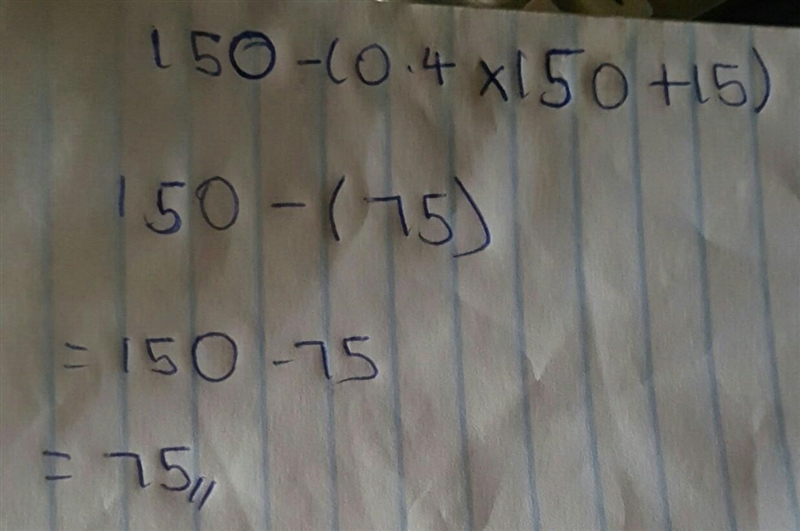 150 - (0.4 × 150 + 15)
150 - (75)
= 150 - 75
= 75,,